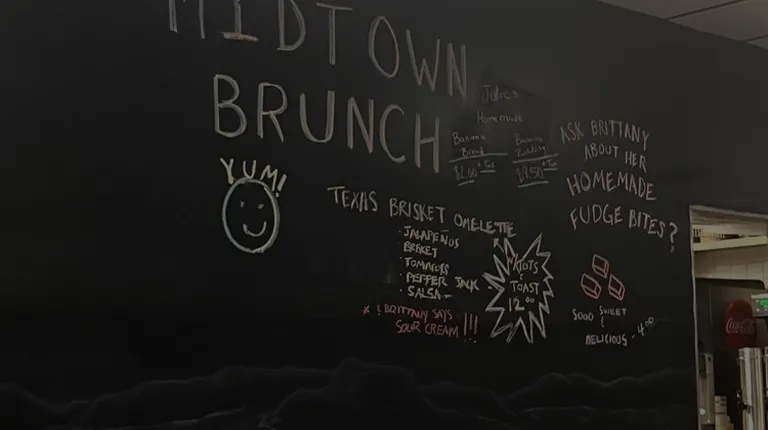 MIDTOWN
BRUNCH
YUM!
Julie's
Homemade
Banana
Bread
$2.00 + Tax
Banana
Pudding
$3.50 + Tax
ASK BRITTANY
ABOUT HER
HOMEMADE
FUDGE BITES?
SOOO SWEET
&
DELICIOUS - 4.00
TEXAS BRISKET OMELETTE
· JALAPEÑOS
· BRISKET
· TOMATOES
· PEPPER JACK
· SALSA
* ! BRITTANY SAYS
SOUR CREAM !!!
TOAST
12.00
Coca-Cola